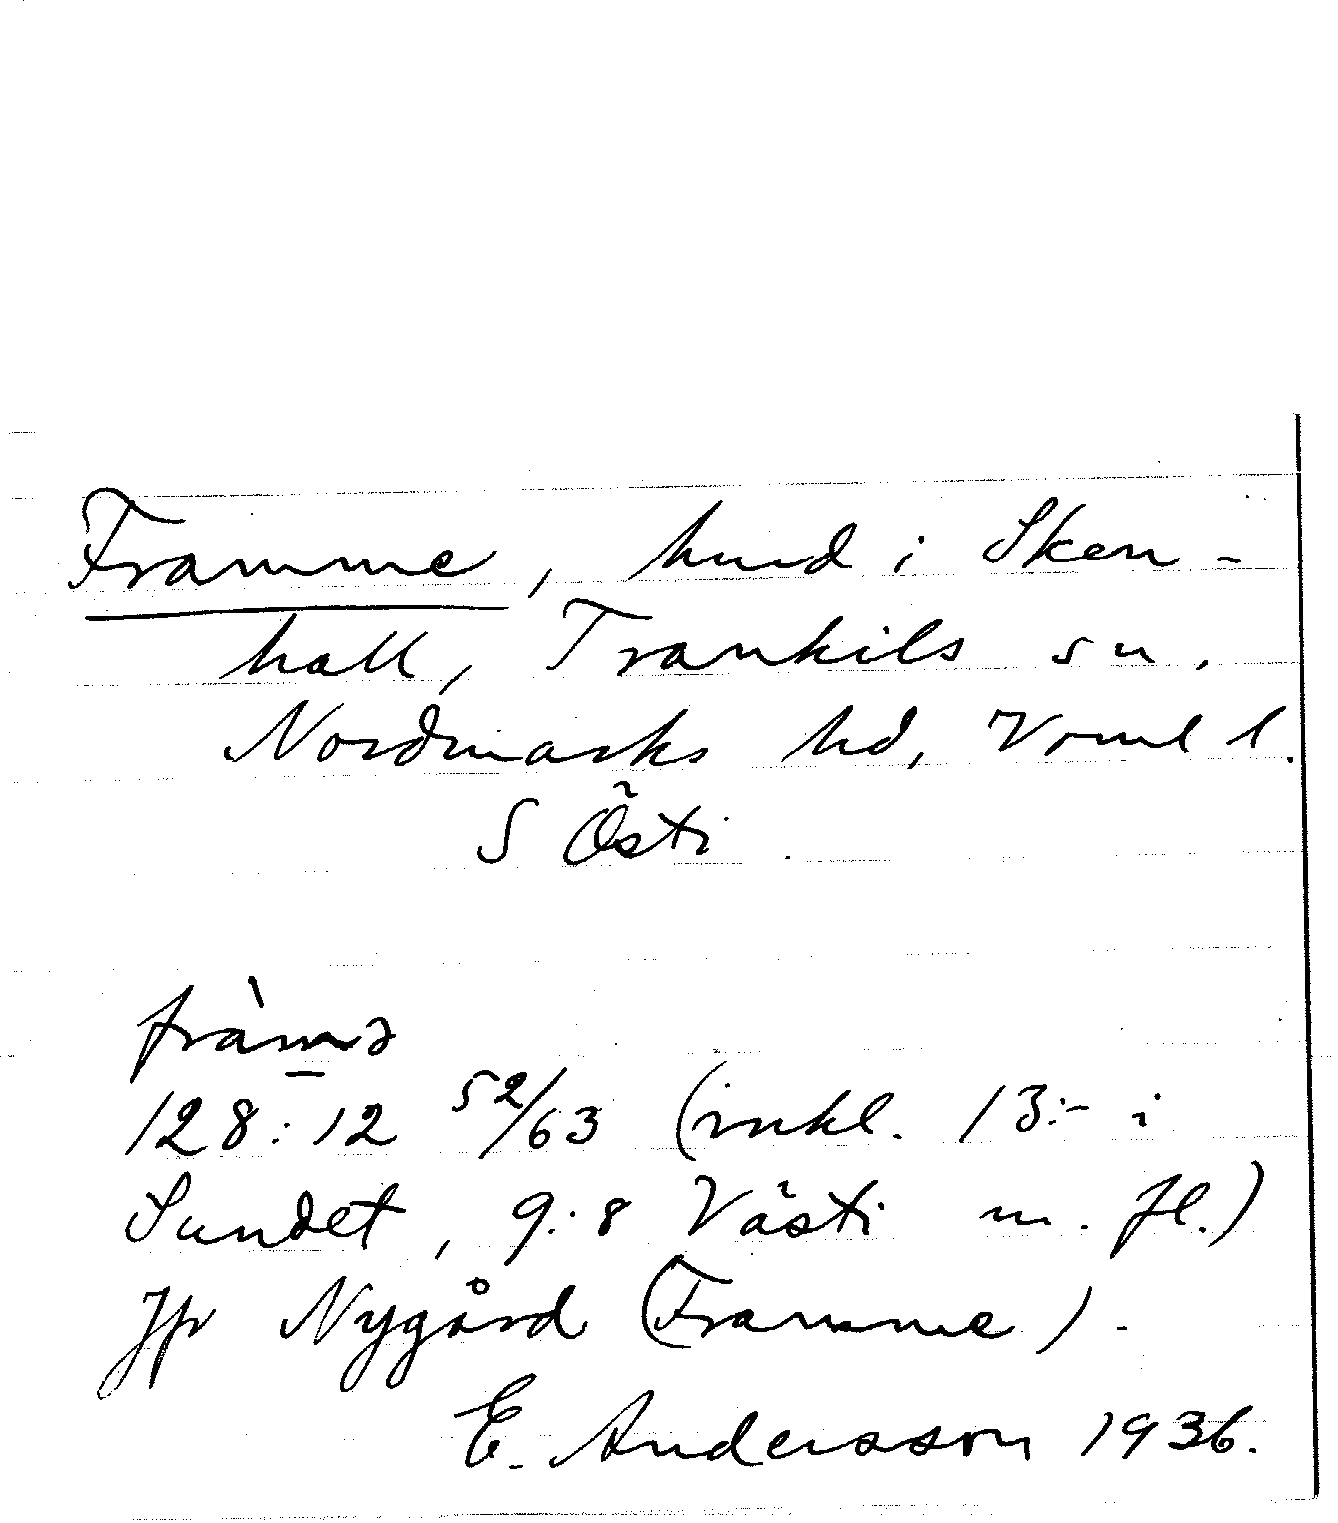 Framme, hmd i Sken-
hall, Trankils sn,
Nordmarks hd, Vrml l.
S Östi
fràmə
128:12 52/63 (inkl. 13:- i
Sundet, 9:8 Västi m. fl.)
Jfr Nygård (Framme).
E. Andersson 1936.